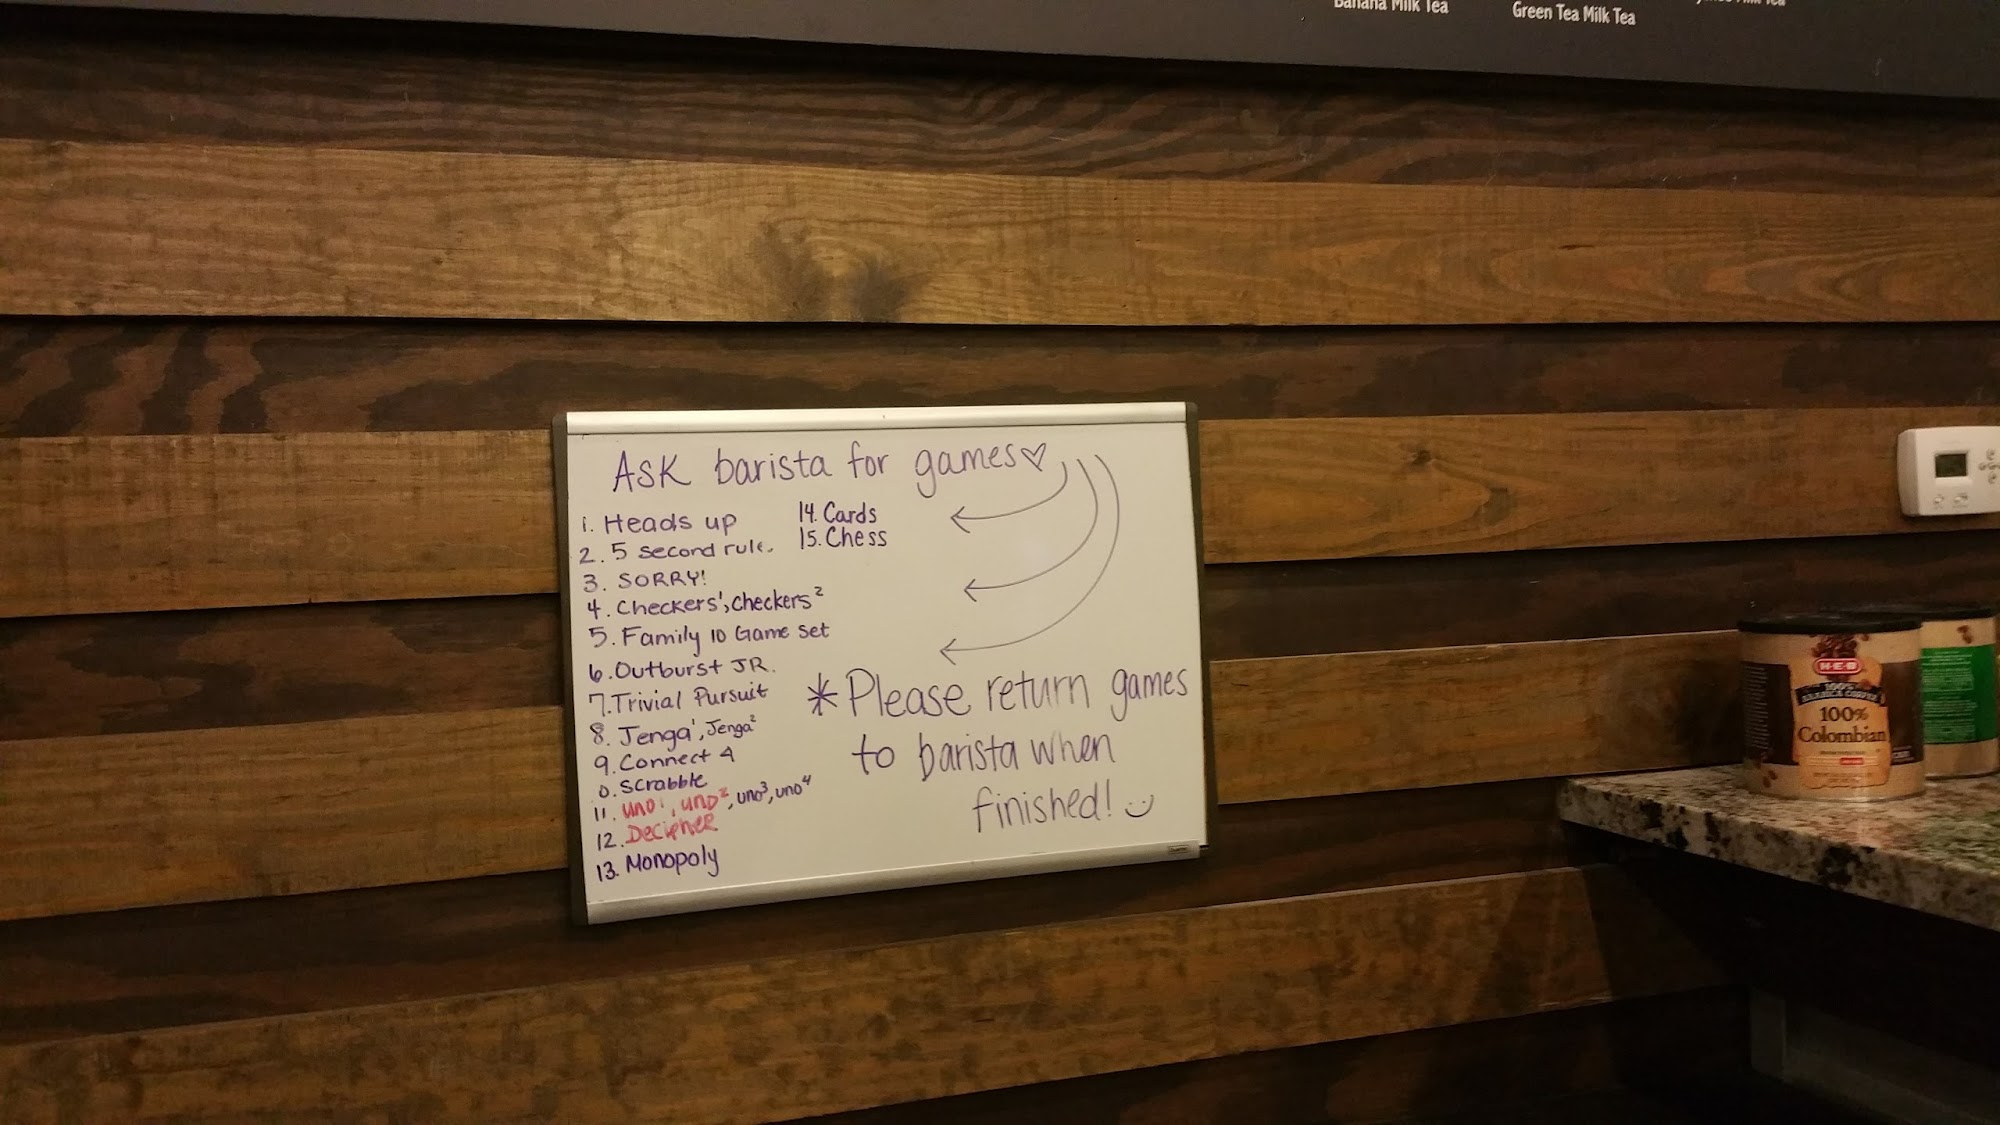 Banana Milk Tea
Green Tea Milk Tea
Milk Tea
Ask barista for games♡
1. Heads up
2. 5 second rule.
3. SORRY!
4. Checkers¹, Checkers²
5. Family 10 Game Set
6. Outburst JR.
7. Trivial Pursuit
8. Jenga¹, Jenga²
9. Connect 4
0. Scrabble
11. uno¹, uno², uno³, uno⁴
12. Decipher
13. Monopoly
14. Cards
15. Chess
*Please return games
to barista when
finished!
H-E-B
100%
ARABICA COFFEE
100%
Colombian